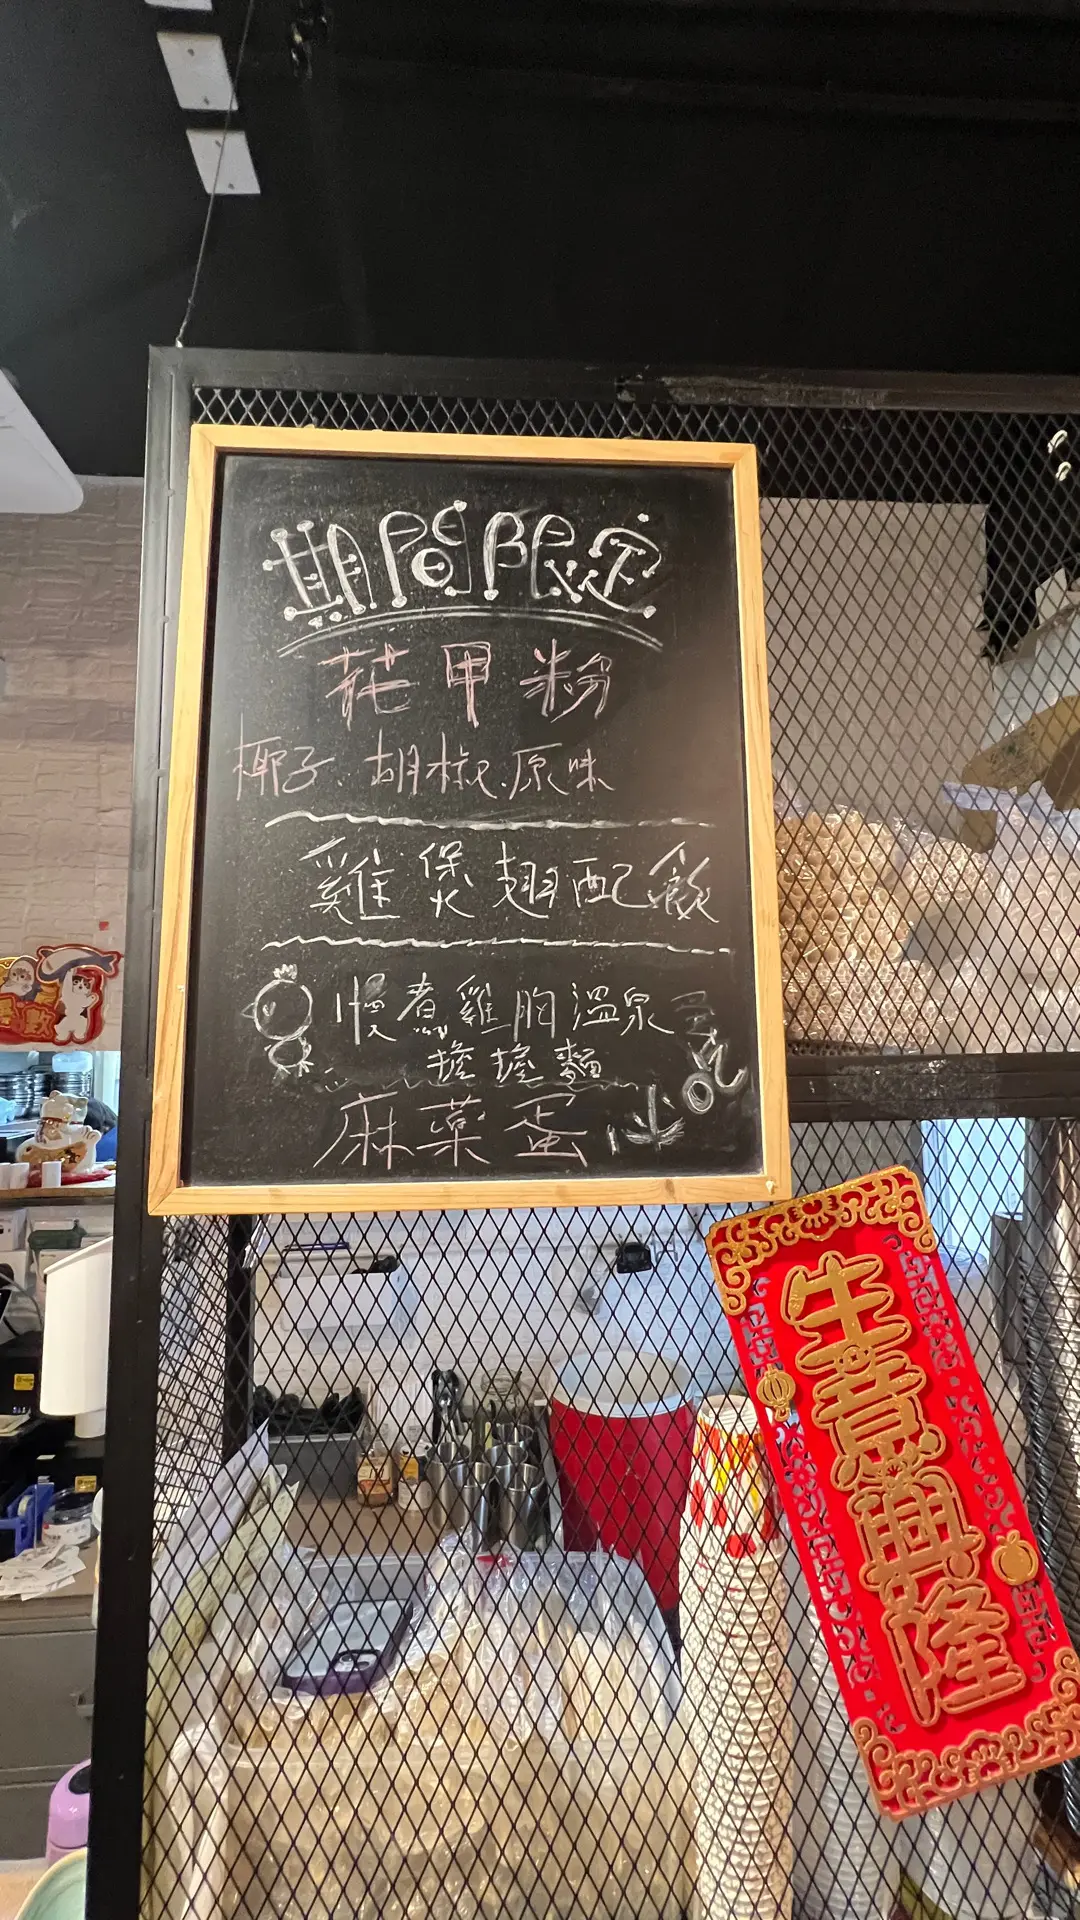 期間限定
花甲粉
椰子、胡椒、原味
雞煲翅配飯
慢煮雞胸溫泉
擔擔麵
麻藥蛋
生意興隆